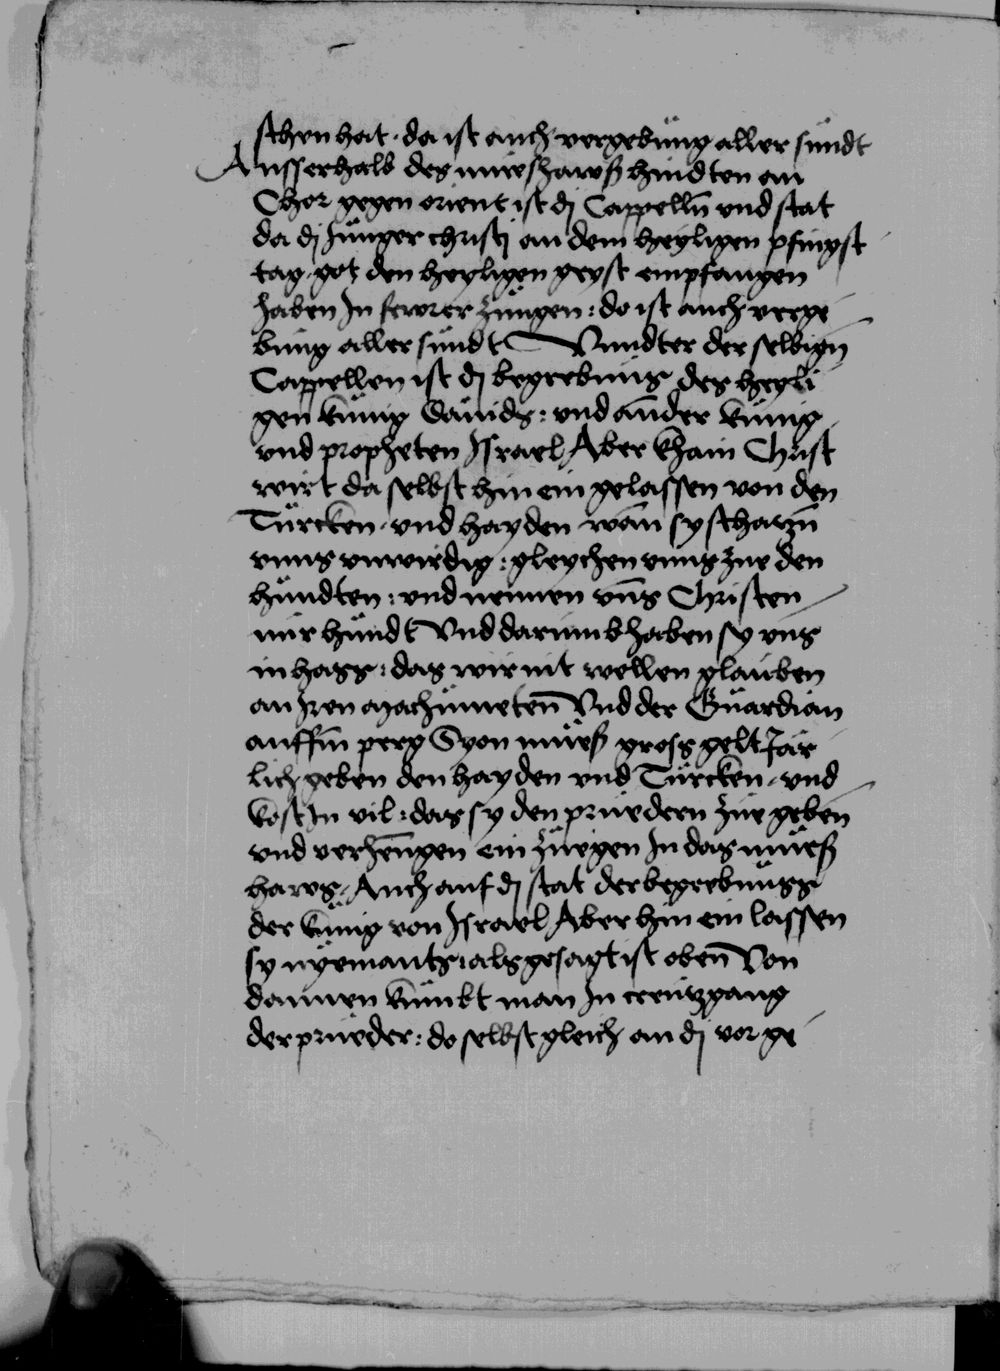 schen hat · da ist auch vergebung aller sündt
Ausserhalb des mueshawß hindten an
Chor gegen orient ist dj Cappelln̄ vnd stat
da dj Jünger christj an dem heyligen pfingst
tag got den heyligen geyst empfangen
haben In fewrer züngen : do ist auch verge
bung aller sündt Vnndter der selbign̄
Cappellen ist dj begrebnüs des heyli
gen künig Dauids : vnd ander künig
vnd propheten Israel Aber khain Christ
wirt da selbst hin ein gelassen von den
Türcken · vnd hayden wān sy scharzn̄
vnns vnwirdig : gleychen vnns zue den
hündten : vnd nennen vn̄s Christen
nür hündt Vnd darumb haben sy vns
in hass : das wir nit wellen glauben
an Iren machumeten̄ Vnd der Guardian
auffm̄ perg Syon mueß gross gelt Jär
lich geben den hayden vnd Türcken · vnd
kost In vil : das sy den prüedern zue geben
vnd verhengen ein zuegen In das mueß
haws · Auch auf dj stat der begrebnüss
der künig von Israel Aber hin ein lassen
sy nyemants : als gesagt ist oben̄ Von
dannen kümbt man In creutzgang
der prüeder : do selbst gleich an dj vor ge